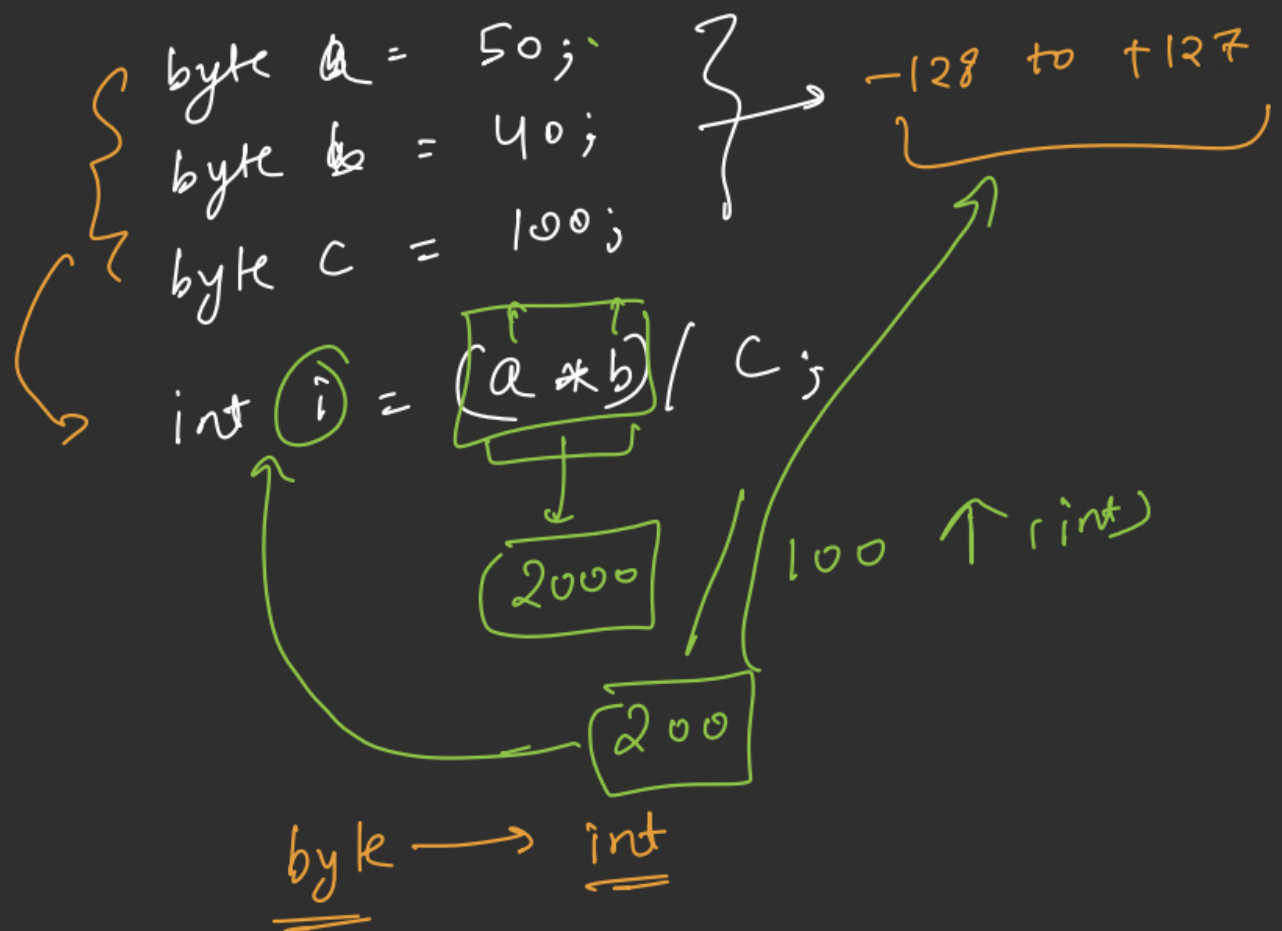 byte a = 50;
byte b = 40;
byte c = 100;
-128 to +127
int i = (a * b) / c;
2000
100 ↑ (int)
200
byte → int